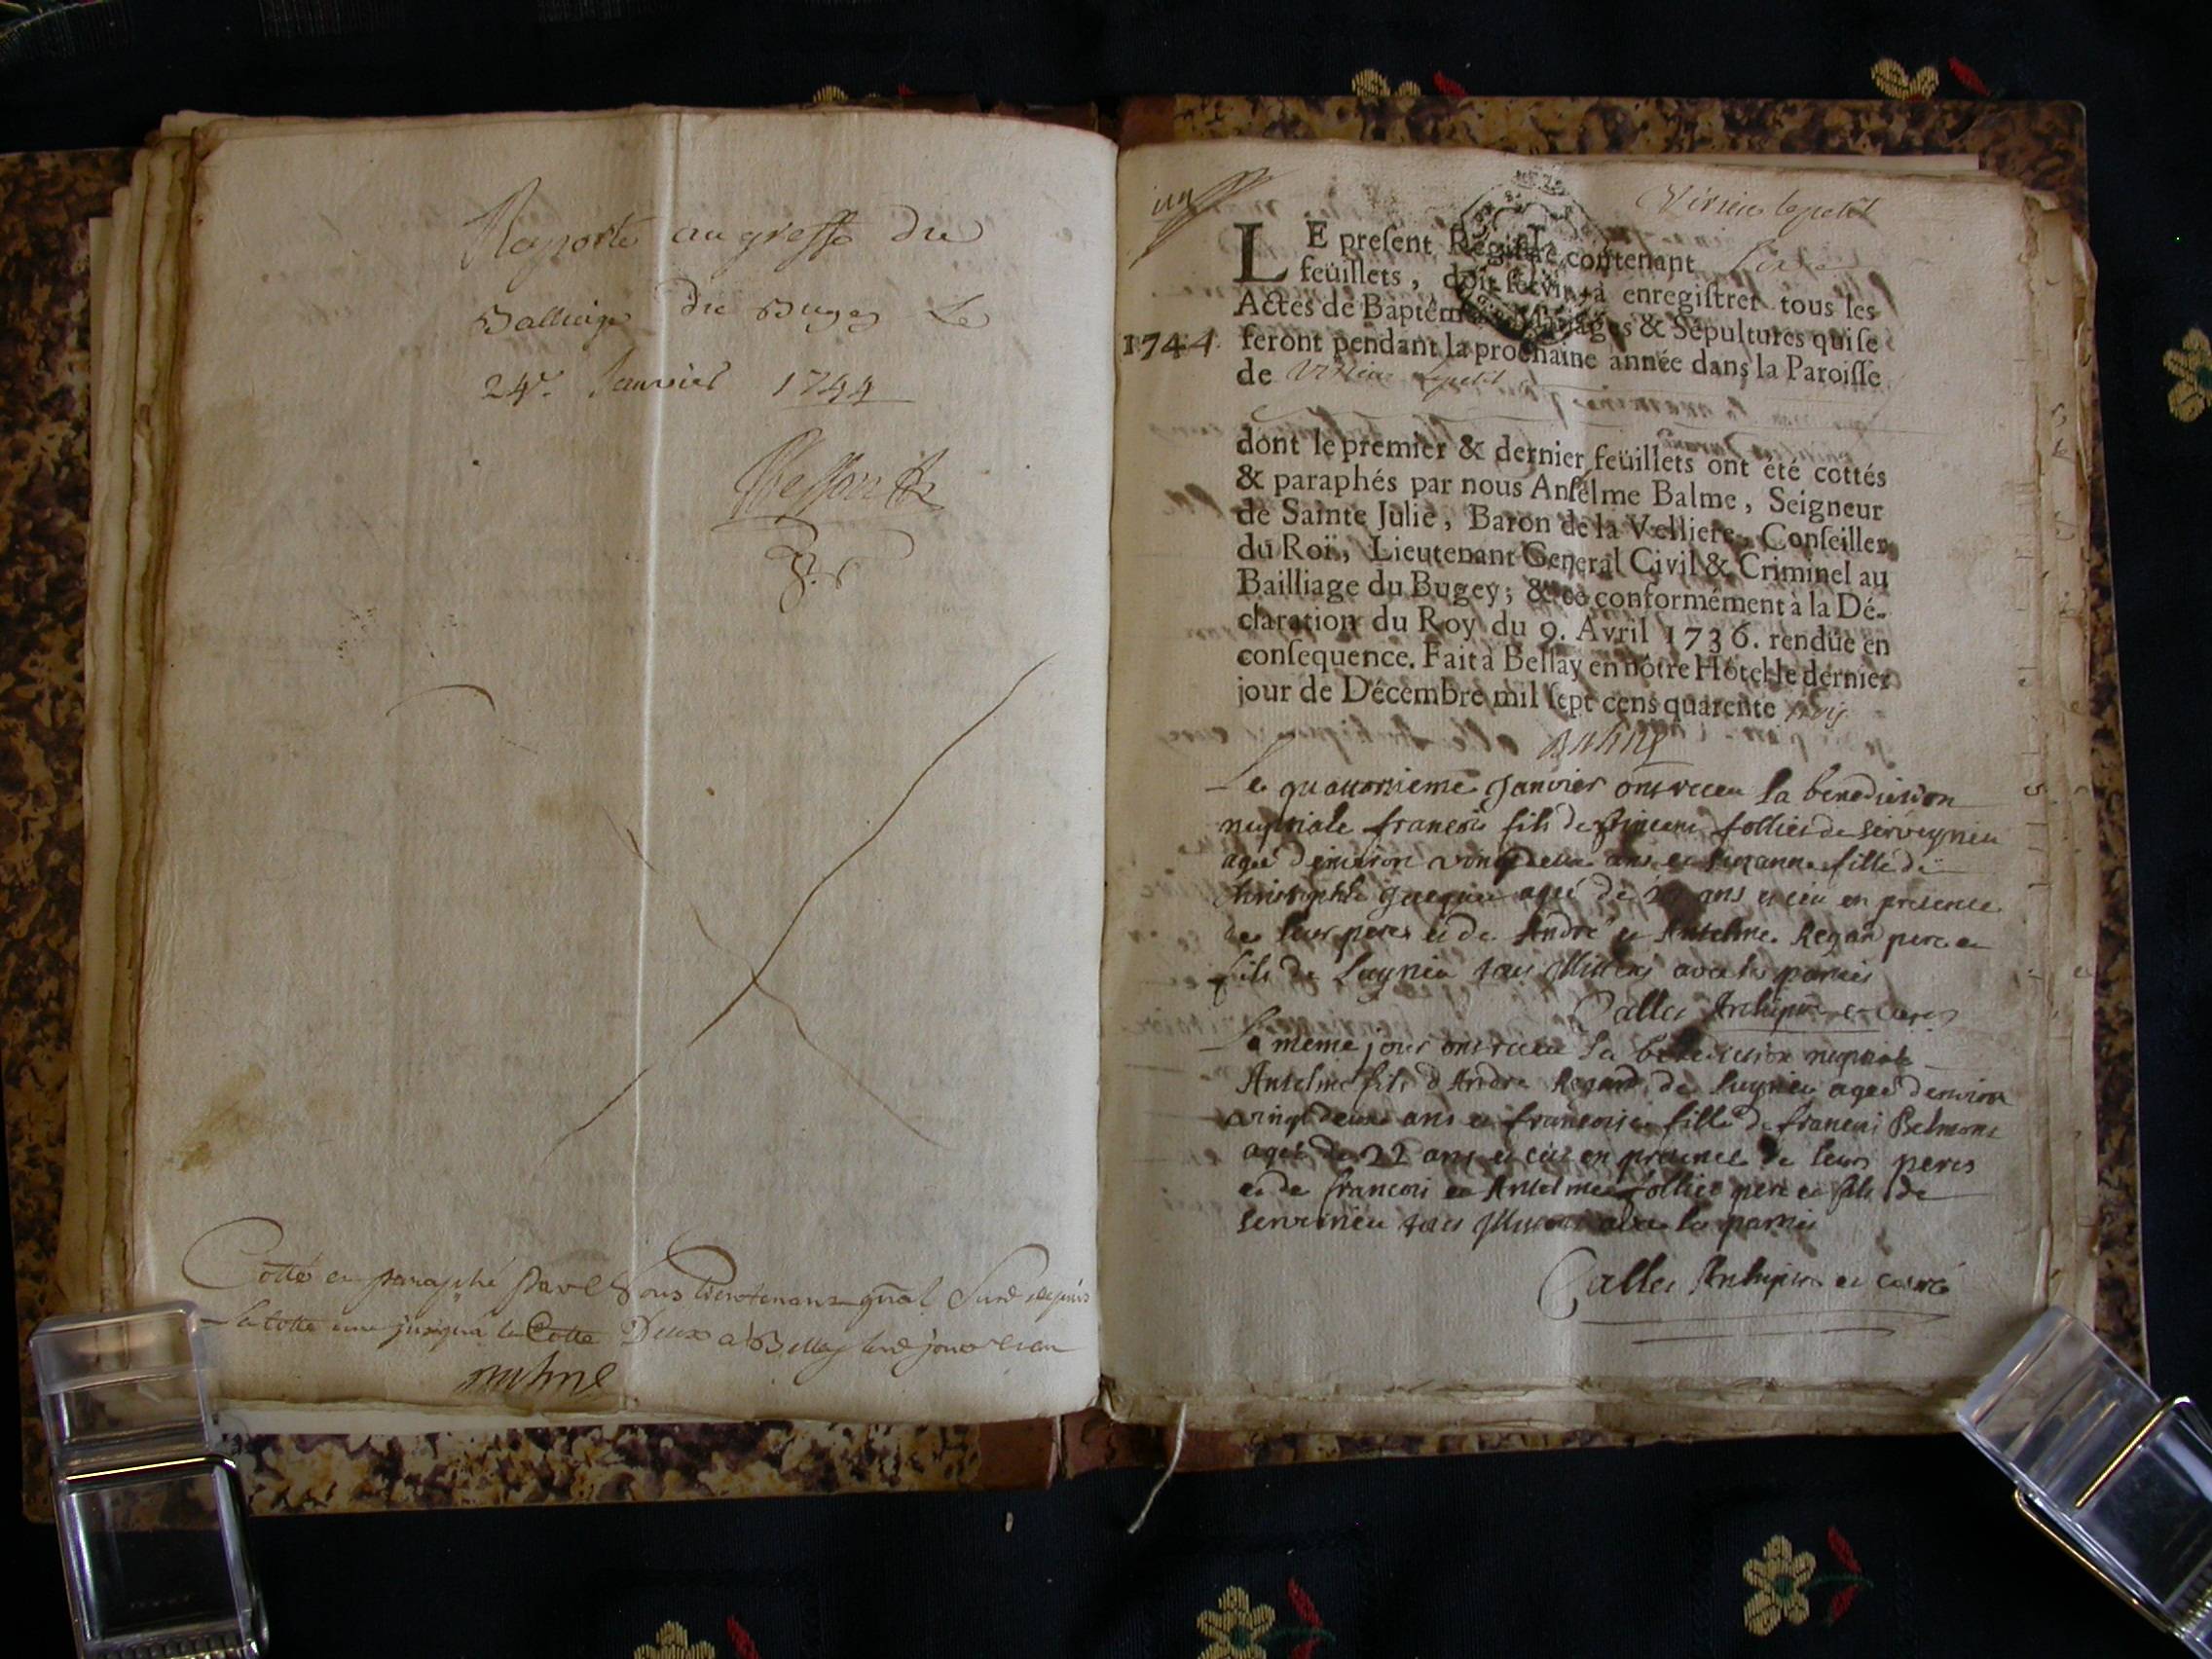 Raporté au greffe du
Balliage du Bugey Le
24e. Janvier 1744
Cotté et paraphé par Nous Lieutenant gnâl Susd depuis
La Cotte une jusqua la Cotte Deux a Belley lesd jour et an
Balme
un
Virieu le petit
LE preſent Regiſtre contenant six
feüillets, doit ſervir à enregiſtrer tous les
Actes de Baptêmes, Mariages & Sépultures qui ſe
1744. feront pendant la prochaine année dans la Paroiſſe
de Virieu Lepetit
dont le premier & dernier feüillets ont été cottés
& paraphés par nous Anſelme Balme, Seigneur
de Sainte Julie, Baron de la Velliere, Conſeiller
du Roï, Lieutenant General Civil & Criminel au
Bailliage du Bugey; & ce conformément à la Dé-
claration du Roy du 9. Avril 1736. rendue en
conſequence. Fait à Bellay en nôtre Hôtel le dernier
jour de Décembre mil ſept cens quarente trois
Balme
Le quatorzieme Janvier ont receu la benediction
nuptiale francois fils de follier de
agé d'environ vingt deux ans et Suzanne fille de
Christophle agée de ans et ceu en presence
de leurs peres et de André et Antelme Regard pere et
fils de Luynieu tous illiteres avec les parties
Callet Archiprêtre et curé
Le meme jour ont receu la benediction nuptiale
Antelme fils d'André Regard de Luynieu agé d'environ
vingt deux ans et francoise fille de francois Belmont
agée de 22 ans et ceu en presence de leurs peres
et de francois et Antelme follier pere et fils de
tous illiteres avec les parties
Callet Archiprêtre et curé